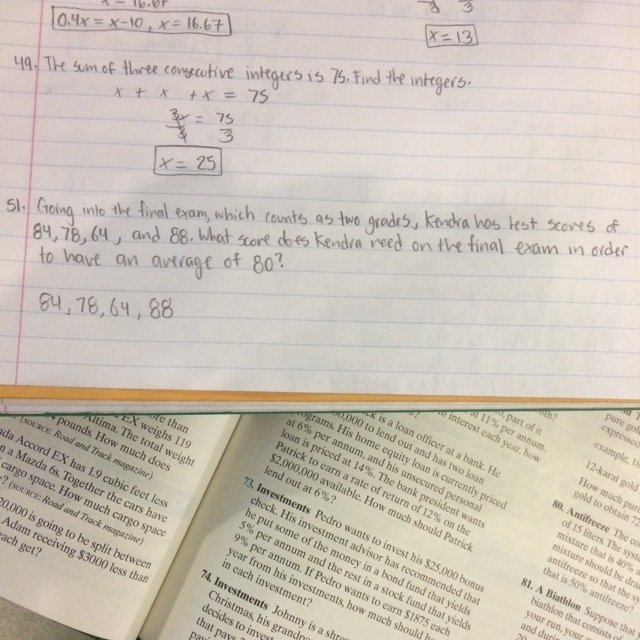 0.4x = x-10, x = 16.67
3
x = 13
49. The sum of three consecutive integers is 75. Find the integers.
x + x + x = 75
3x = 75
3 3
x = 25
51. Going into the final exam, which counts as two grades, Kendra has test scores of
84, 78, 64, and 88. What score does Kendra need on the final exam in order
to have an average of 80?
84, 78, 64, 88
than
EX weighs 119
Altima. The total weight
pounds. How much does
(SOURCE: Road and Track magazine)
Accord EX has 1.9 cubic feet less
a Mazda 6s. Together the cars have
cargo space. How much cargo space
? (SOURCE: Road and Track magazine)
is going to be split between
Adam receiving $3000 less than
each get?
is a loan officer at a bank. He
to lend out and has two loan
His home equity loan is currently priced
at 6% per annum, and his unsecured personal
loan is priced at 14%. The bank president wants
Patrick to earn a rate of return of 12% on the
$2,000,000 available. How much should Patrick
lend out at 6%?
73. Investments Pedro wants to invest his $25,000 bonus
check. His investment advisor has recommended that
he put some of the money in a bond fund that yields
5% per annum and the rest in a stock fund that yields
9% per annum. If Pedro wants to earn $1875 each
year from his investments, how much should he
in each investment?
74. Investments Johnny is a
Christmas, his
decides to
that pays
part of it
at 11% per annum.
in interest each year, how
pure gold
example,
12-karat gold
How much pure
gold to obtain
80. Antifreeze The
of 15 liters. The
mixture that is 40%
mixture should be
antifreeze so that the
that is 50% antifreeze?
81. A Biathlon Suppose that
biathlon that consists
your run,